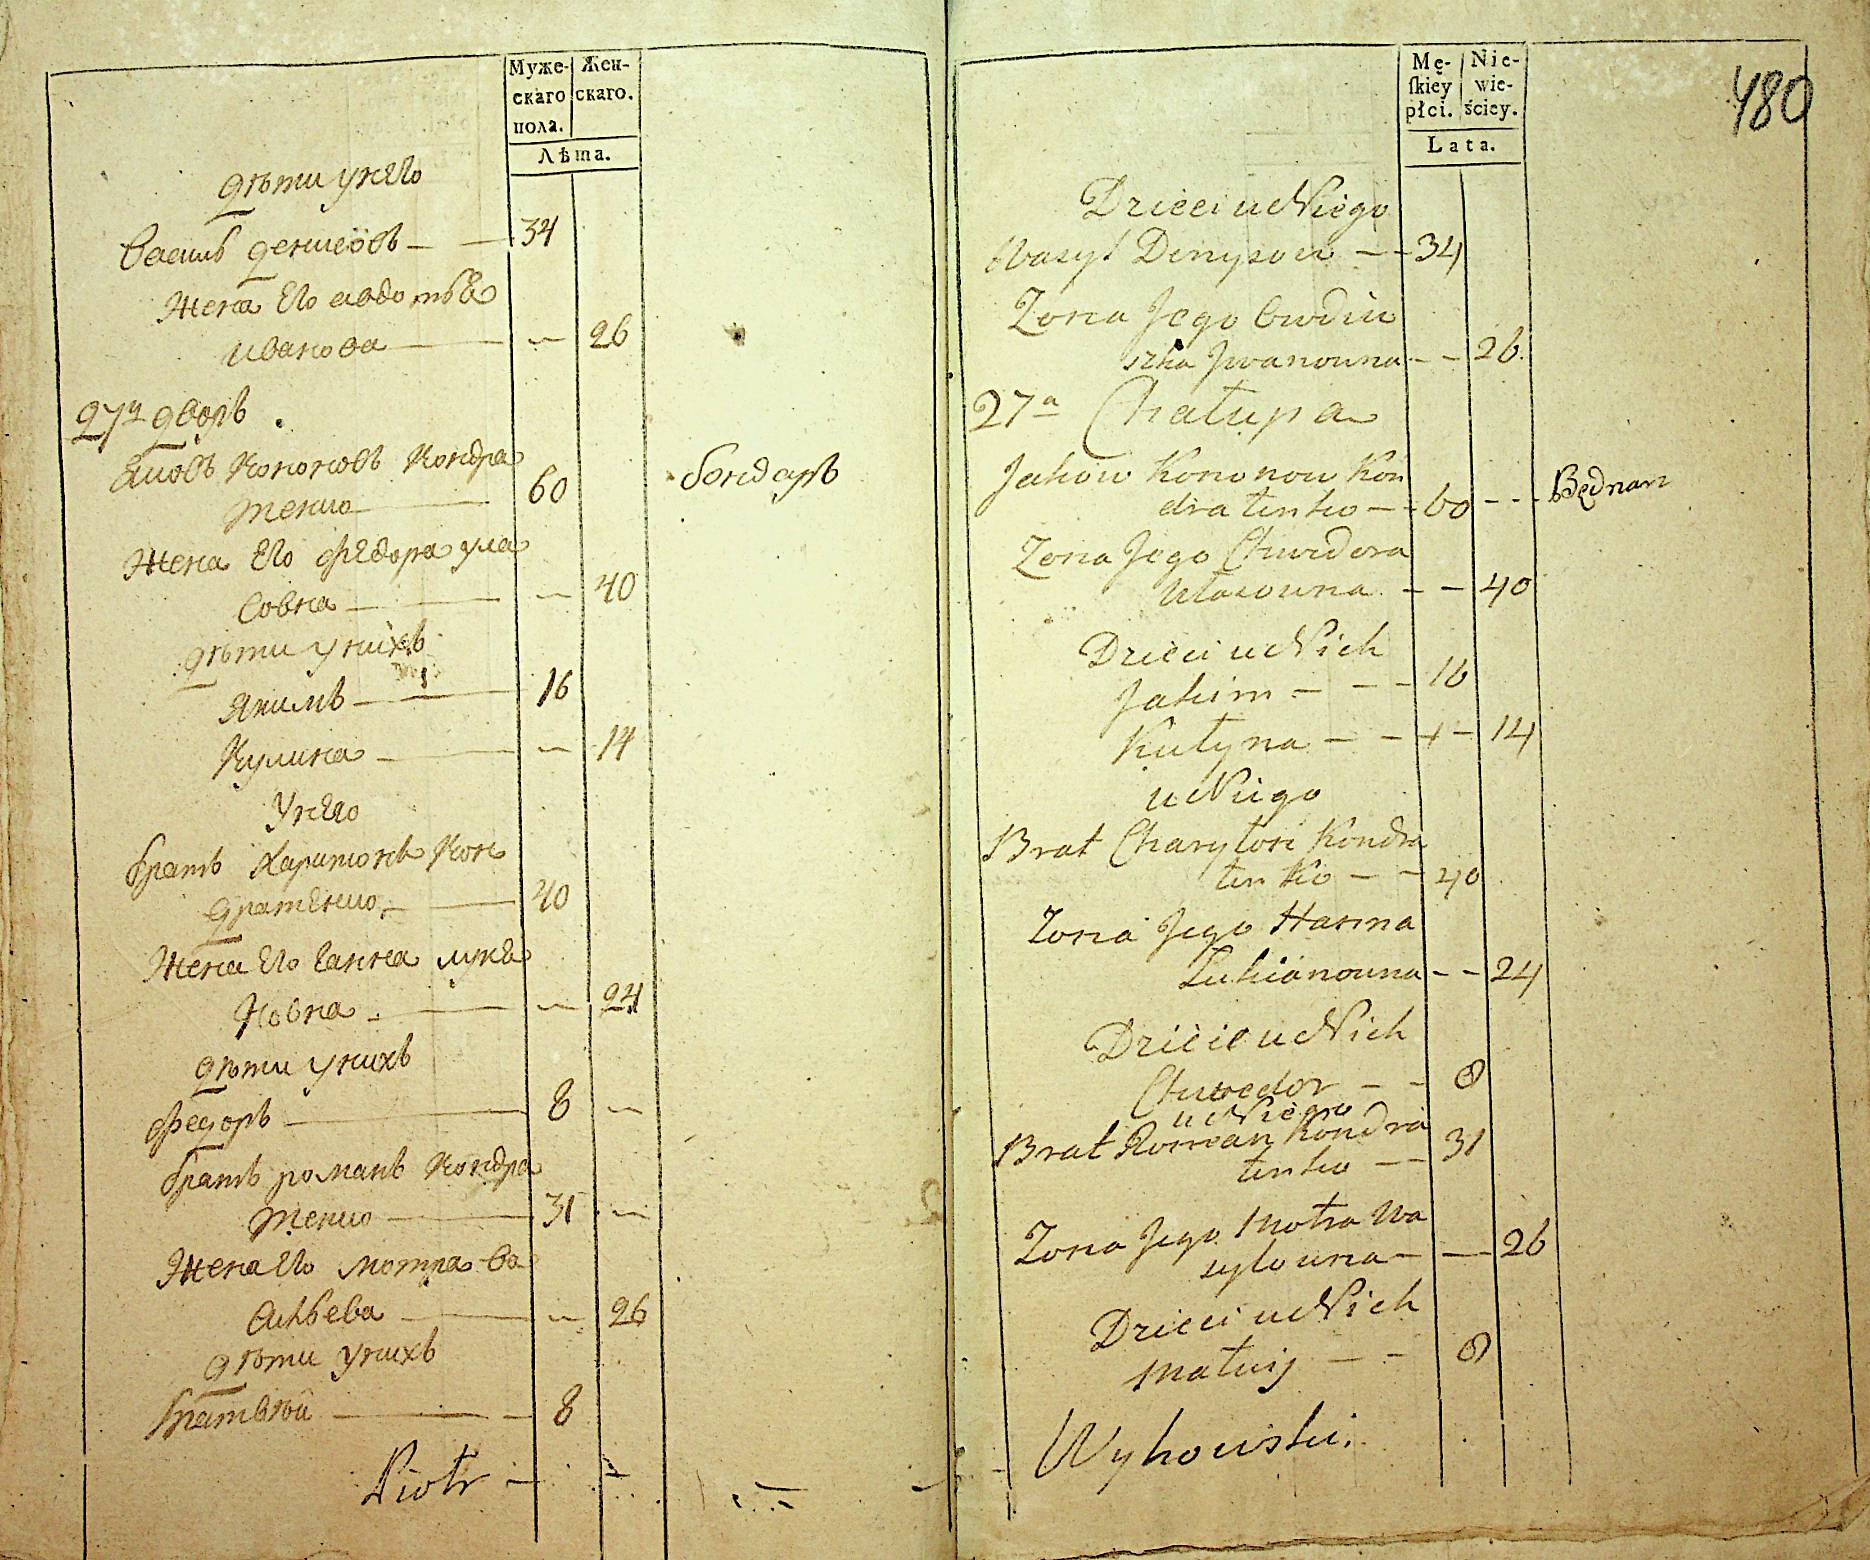 Муже-
скаго
пола.
Жен-
скаго.
Лѣта.
дѣти унего
Василь денисовъ — — 34
Жена его евдотьѣ
иванова — — 26
27й дворъ.
Яковъ Кононовъ Кондра
тенко — 60 бондаръ
Жена его федора ула
совна — — 40
дѣти унихъ
Якимъ — 16
Кулина — — 14
унего
братъ Харитонъ Кон
дратенко — 40
Жена его Ганна лукѣ
яновна — — 24
дѣти унихъ
федоръ — 8 —
братъ романъ Кондра
тенко — 31 —
Жена его мотра ва
сильева — — 26
дѣти унихъ
— 8
Piotr —
Mę-
ſkiey
płci.
Nie-
wie-
ściey.
Lata.
480
Dzieci u Niego
Wasyl Denysow — — 34
Zona Jego Owdiu
szka Jwanowna — — 26
27a Chałupa
Jakow Kononow Kon
dratenko — — 60 - - - Bednarz
Zona Jego Chwedora
Ułasowna — — 40
Dzieci u Nich
Jakim — — — 16
Kulyna — — + — 14
u Niego
Brat Charyton Kondra
tenko — — 40
Zona Jego Hanna
Lukianowna — — 24
Dziecie u Nich
Chwedor — — 8
u Niego
Brat Roman Kondra
tenko — — 31
Zona Jego Motra Wa
sylowna — — 26
Dzieci u Nich
Matwij — — 8
Wyhowski.